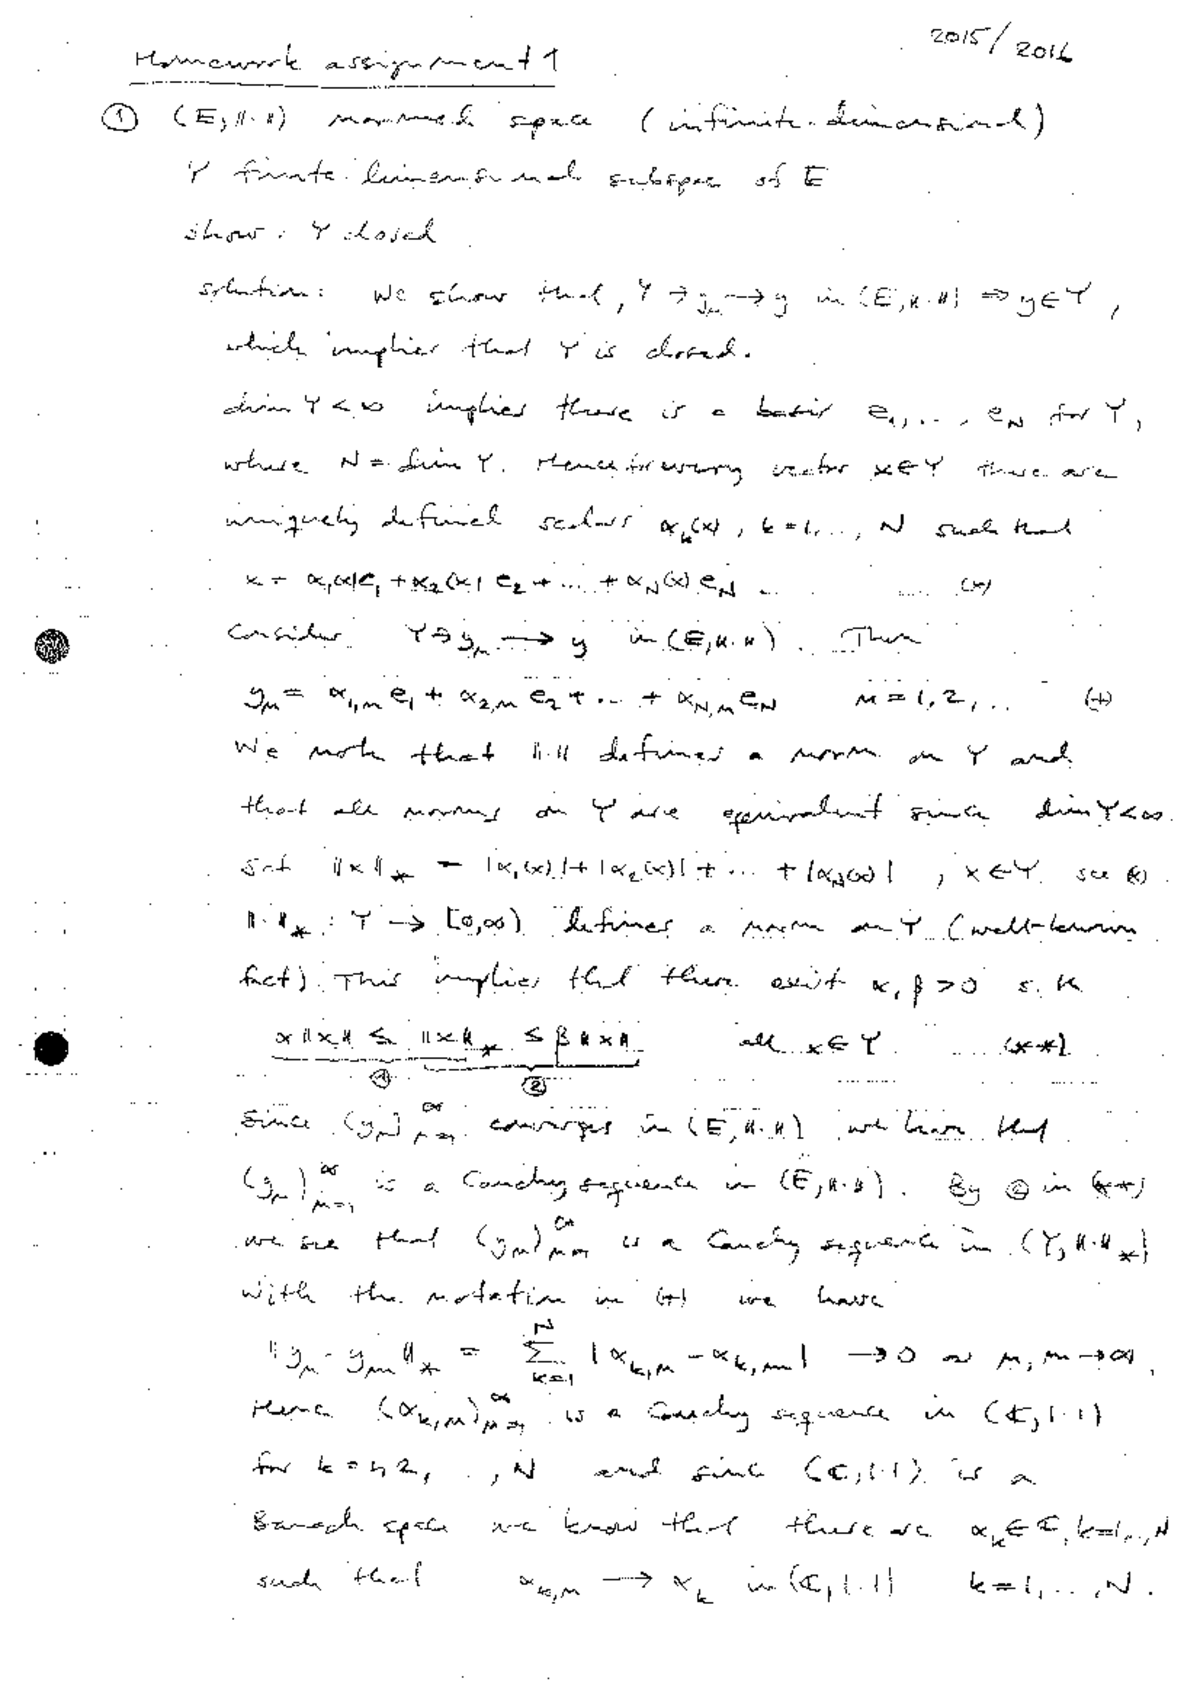 2015/2016
Homework assignment 1
① (E, ||·||) normed space (infinite-dimensional)
Y finite-dimensional subspace of E
show: Y closed
solution: We show that, Y ∋ yₙ → y in (E, ||·||) ⇒ y ∈ Y,
which implies that Y is closed.
dim Y < ∞ implies there is a basis e₁, ..., e_N for Y,
where N = dim Y. Hence for every vector x ∈ Y there are
uniquely defined scalars α_k(x), k = 1, ..., N such that
x = α₁(x)e₁ + α₂(x)e₂ + ... + α_N(x)e_N ... (*)
Consider Y ∋ yₙ → y in (E, ||·||). Then
yₙ = α_{1,n}e₁ + α_{2,n}e₂ + ... + α_{N,n}e_N n = 1, 2, ... (+)
We note that ||·|| defines a norm on Y and
that all norms on Y are equivalent since dim Y < ∞.
Set ||x||_* = |α₁(x)| + |α₂(x)| + ... + |α_N(x)|, x ∈ Y see (*).
||·||_* : Y → [0, ∞) defines a norm on Y (well-known
fact). This implies that there exist α, β > 0 s.th.
α||x|| ≤ ||x||_* ≤ β||x|| all x ∈ Y ... (**)
① ②
Since (yₙ)_{n=1}^∞ converges in (E, ||·||) we have that
(yₙ)_{n=1}^∞ is a Cauchy sequence in (E, ||·||). By ② in (**)
we see that (yₙ)_{n=1}^∞ is a Cauchy sequence in (Y, ||·||_*)
With the notation in (+) we have
||yₙ - yₘ||_* = Σ_{k=1}^N |α_{k,n} - α_{k,m}| → 0 as n, m → ∞.
Hence (α_{k,n})_{n=1}^∞ is a Cauchy sequence in (ℂ, |·|)
for k = 1, 2, ..., N and since (ℂ, |·|) is a
Banach space we know that there are α_k ∈ ℂ, k=1,..,N
such that α_{k,n} → α_k in (ℂ, |·|) k = 1, ..., N.